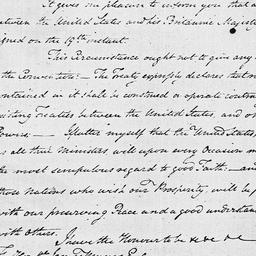 It gives me pleasure to inform you that a
between the United States and his Britannic Majesty
signed on the 19th instant.
This Circumstance ought not to give any
the Convention: The Treaty expressly declares that no
contained in it shall be construed or operate contra
existing Treaties between the United States, and o
Powers. I flatter myself that the United States,
as all their Ministers, will upon every Occasion m
the most scrupulous regard to good Faith: and
those Nations who wish our Prosperity will be p
with our preserving Peace and a good understand
with others. I have the Honour to be &c &c &c